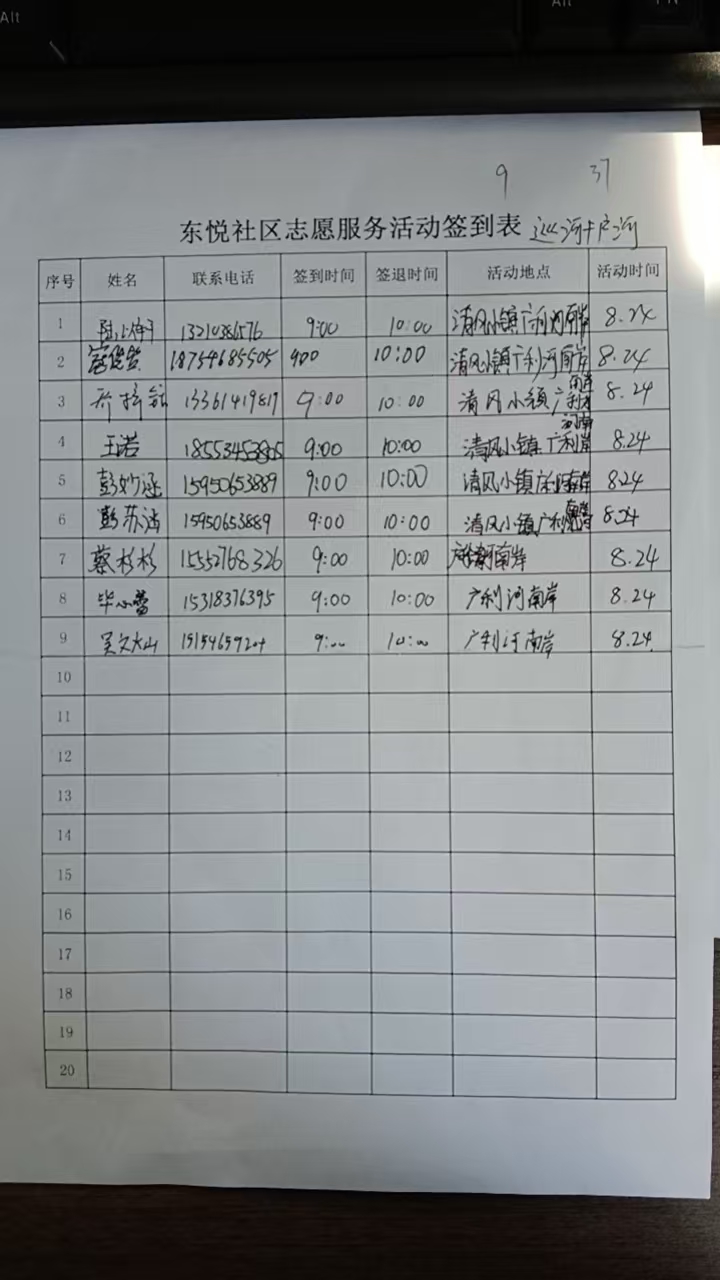 Alt
Alt
9 37
东悦社区志愿服务活动签到表 巡河护河
序号 姓名 联系电话 签到时间 签退时间 活动地点 活动时间
1 9:00 10:00 清风小镇广利河南岸 8.24
2 18754685505 900 10:00 清风小镇广利河南岸 8.24
3 13361419817 9:00 10:00 清风小镇广利河南岸 8.24
4 王诺 9:00 10:00 清风小镇广利河南岸 8.24
5 彭妙涵 15950653889 9:00 10:00 清风小镇广利河南岸 8.24
6 彭苏涵 15950653889 9:00 10:00 清风小镇广利河南岸 8.24
7 蔡杉杉 15552768326 9:00 10:00 广利河南岸 8.24
8 毕心蕾 15318376395 9:00 10:00 广利河南岸 8.24
9 9:00 10:00 广利河南岸 8.24
10
11
12
13
14
15
16
17
18
19
20